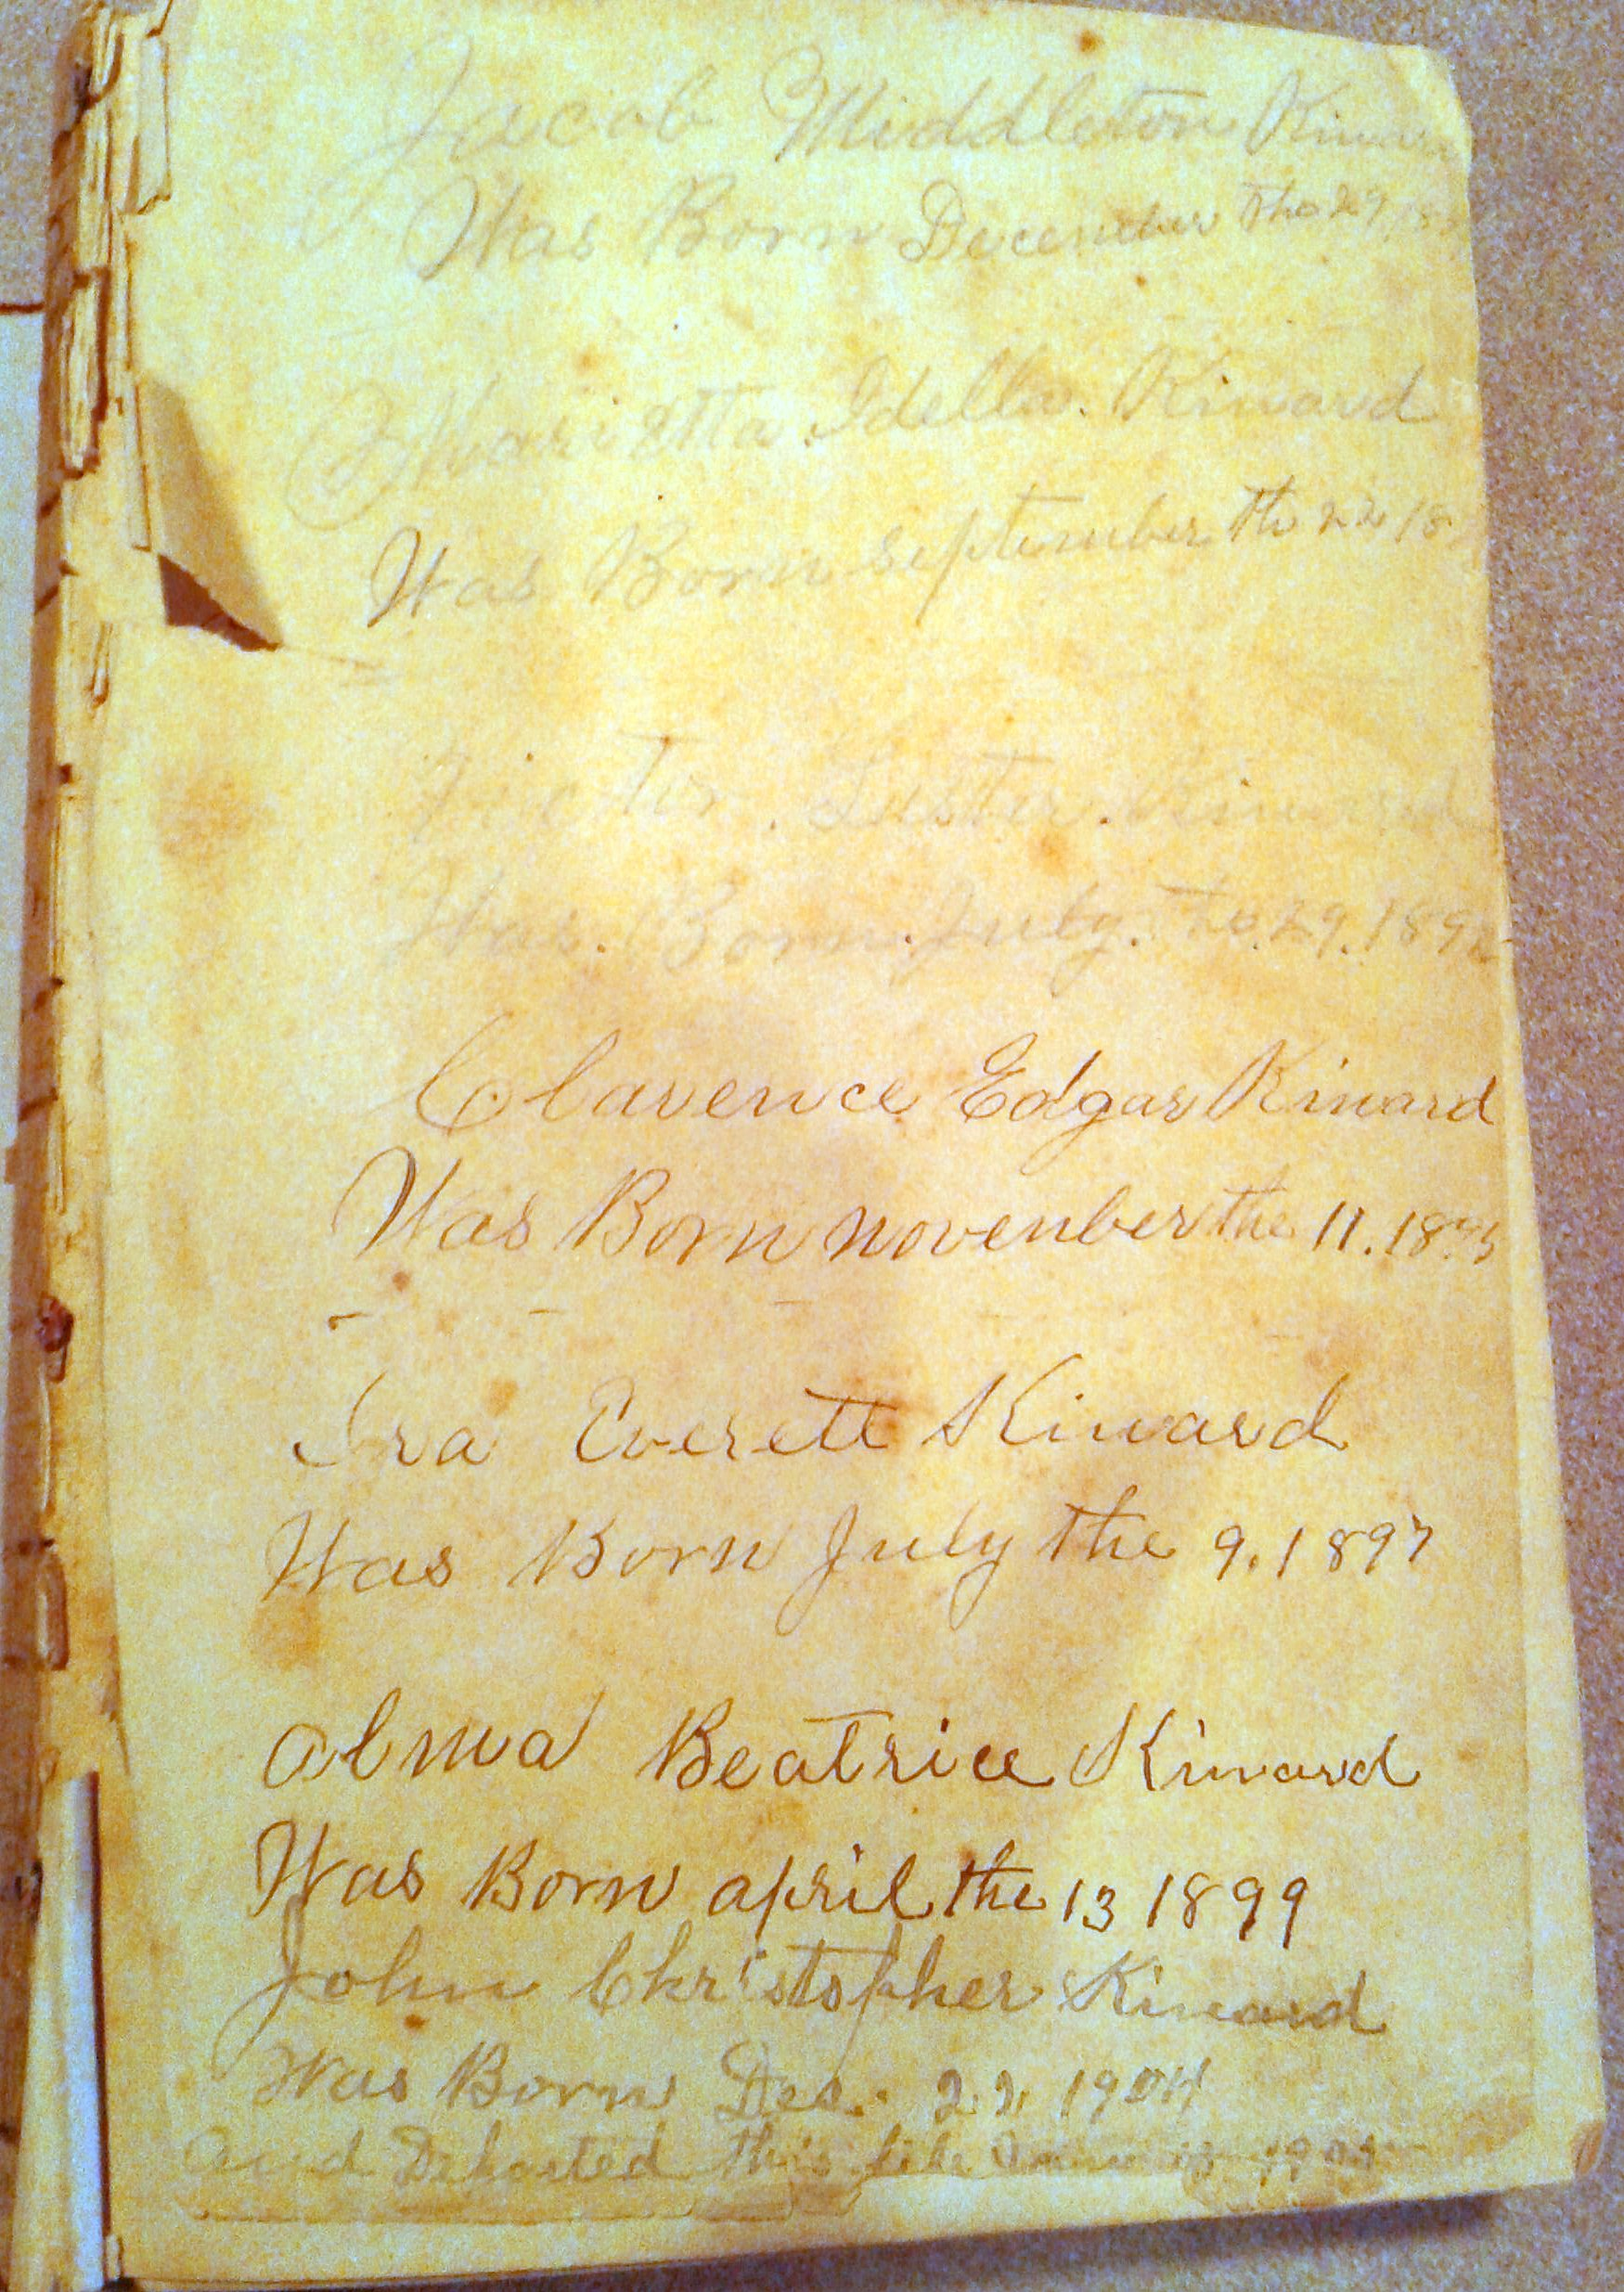 Jacob Middleton Kinard
Was Born December the 29, 18
Marietta Idella. Kinard
Was Born September th 22 18
Victor. Luster. Kinard
Was. Born. July. the. 29. 189
Clarence Edgar Kinard
Was Born novenber the 11. 18
Ira Everett Kinard
Was Born July the 9. 1897
alma Beatrice Kinard
Was Born april the 13 1899
John Christopher Kinard
Was Born Dec. 22 1904
and Departed this life